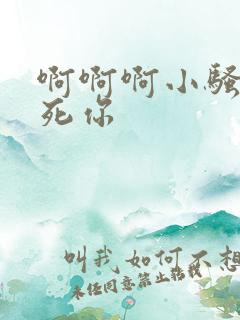 啊啊啊小骚
死你
叫我如何不想
未经同意禁止转载